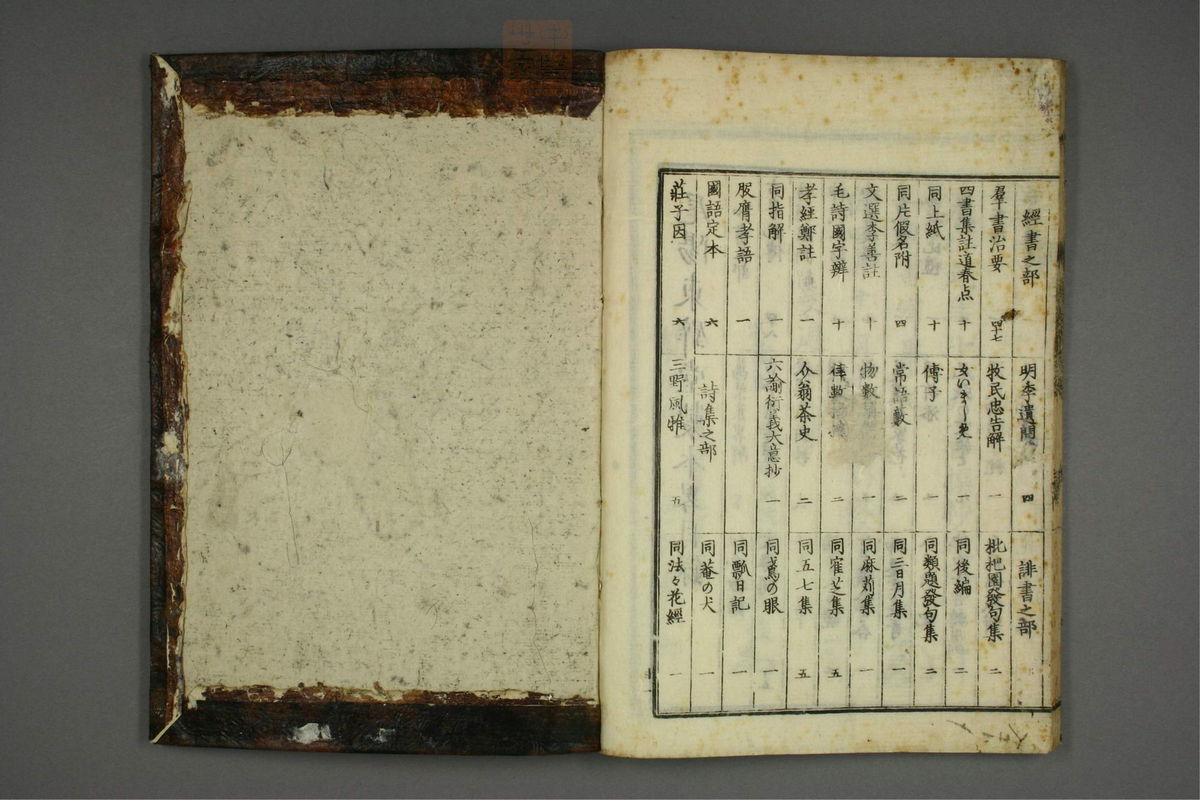 經書之部
羣書治要 四十七
四書集註道春点 十
同上紙 十
同片假名附 四
文選李善註 十
毛詩國字辨 十
孝經鄭註 一
同指解 一
服膺孝語 一
國語定本 六
莊子因 六
明季遺聞 四
牧民忠告解 一
女いましめ 一
傅子 一
常語藪 二
物數 一
二
介翁茶史 二
六諭衍義大意抄 一
詩集之部
三野風雅 五
誹書之部
枇杷園發句集 二
同後編 二
同類題發句集 二
同三日月集 一
同麻苅集 一
同寉芝集 五
同五七集 五
同鳶の眼 一
同瓢日記 一
同菴の犬 一
同法々花經 一